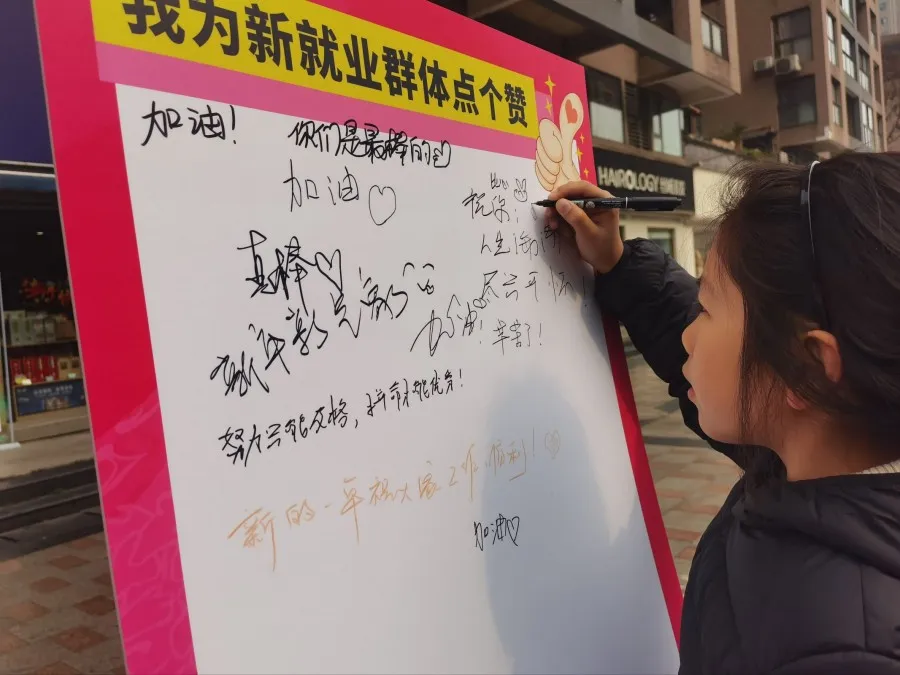 我为新就业群体点个赞
HAIROLOGY
加油!
你们是最棒的
加油
祝你:
人生
尽兴开怀!
真棒
加油!
辛苦了!
努力只能及格,拼命才能优秀!
新的一年祝大家工作顺利!
加油